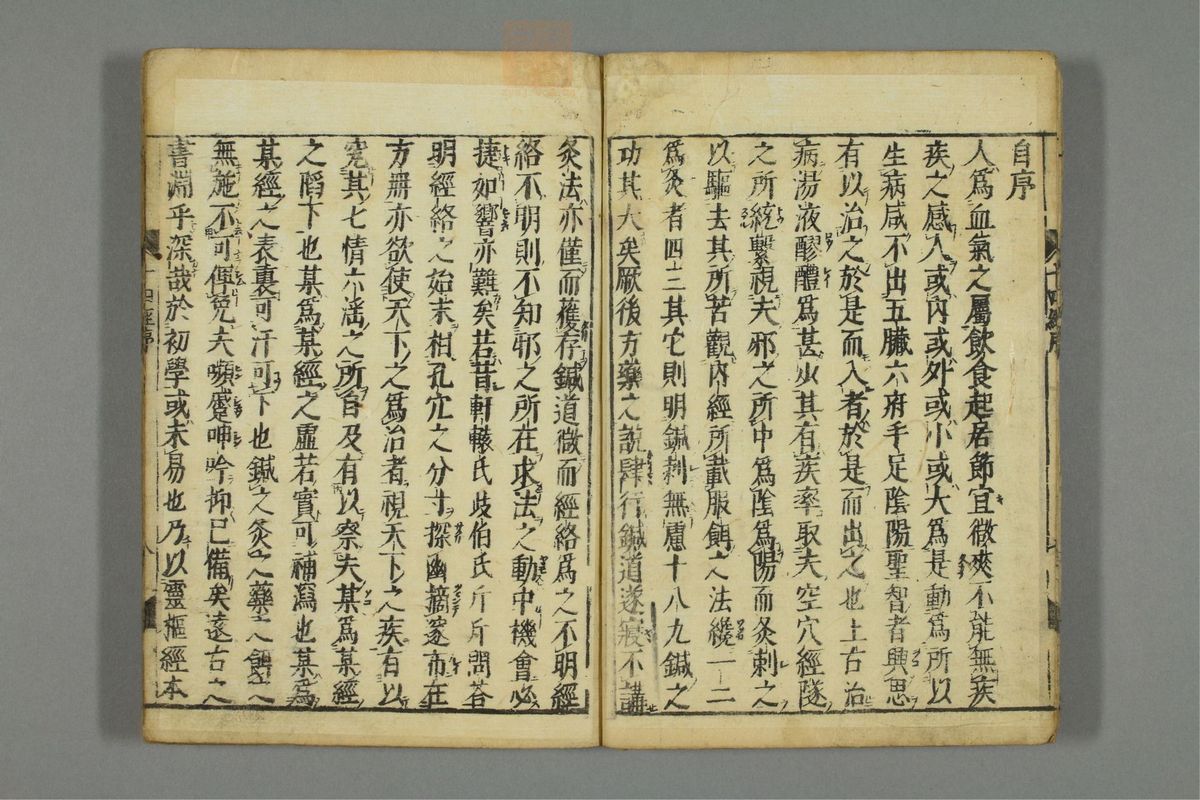 自序
人爲血氣之屬飲食起居節宜微爽不能無疾
疾之感人或内或外或小或大爲是動爲所以
生病咸不出五臟六府手足陰陽聖智者興思
有以治之於是而入者於是而出之也上古治
病湯液醪醴爲甚少其有疾率取夫空穴經隧
之所統繫視夫邪之所中爲陰爲陽而灸刺之
以驅去其所苦觀内經所載服餌之法纔一二
爲灸者四三其它則明鍼刺無慮十八九鍼之
功其大矣厥後方藥之說肆行鍼道遂寢不講
灸法亦僅而獲存鍼道微而經絡爲之不明經
絡不明則不知邪之所在求法之動中機會必
捷如響亦難矣若昔軒轅氏歧伯氏斤斤問荅
明經絡之始末相孔穴之分寸探幽摘邃布在
方冊亦欲使天下之爲治者視天下之疾有以
究其七情六滛之所自及有以察夫某爲某經
之陷下也某爲某經之虛若實可補瀉也某爲
某經之表裏可汗可下也鍼之灸之藥之餌之
無施不可俾免夫嚬蹙呻吟抑已備矣遠古之
書淵乎深哉於初學或未易也乃以靈樞經本
十四經序